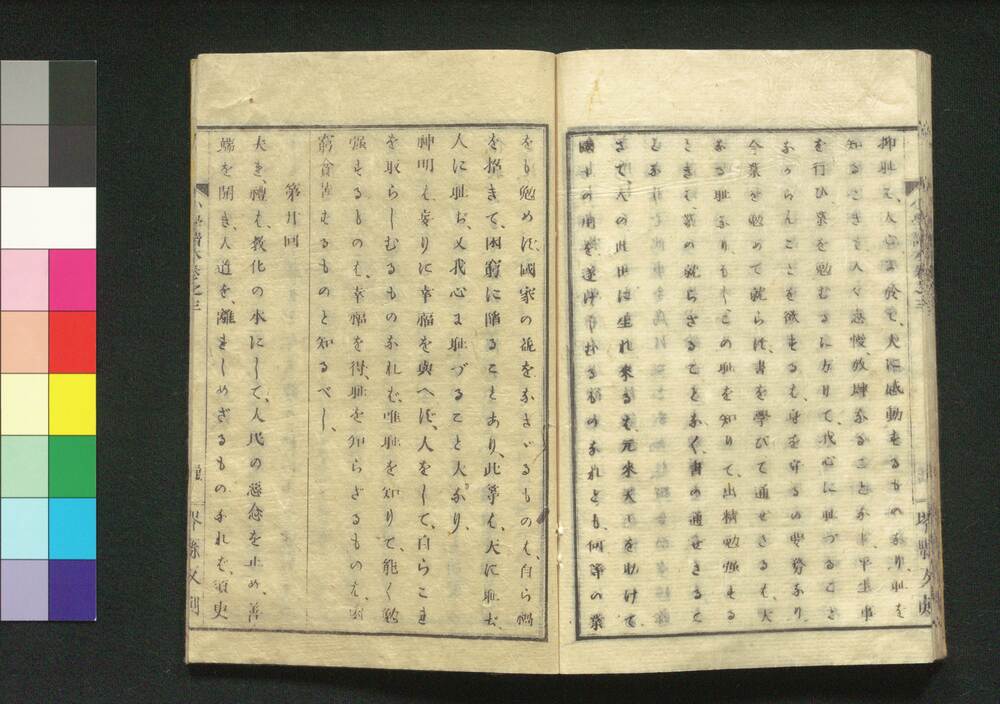 抑耻ハ、人心ニ發して、大に感動せるものなり、耻を
知るときハ、人々怠慢放肆なることなし、平生事
を行ひ、業を勉むるに方りて、我心に耻づること
なからんことを欲するハ、身を守るの要務なり
今業を勉めて就らず、書を學びて通せざるハ、大
なる耻なり、もしこの耻を知りて、出精勉強する
ときハ、業の就らざることなく、書の通せざること
もなし
さて、人の此世に生れ來るハ、元來天工を助けて、
國中の用を達すべきものなれども、何等の業
をも勉めず、國家の益をなさゞるものハ、自ら禍
を招きて、困窮に陥ることあり、此等ハ、大に耻よ、
人に耻ぢ、又我心に耻づること大なり、
神明ハ妄りに幸福を與へず、人をして、自らこれ
を取らしむるものなれば、唯耻を知りて、能く勉
強するものハ、幸福を得、耻を知らざるものハ、困
窮貧苦するものと知るべし、
第廿回
夫き禮ハ、教化の本にして、人民の惡念を止め、善
端を開き、人道を、離れしめざるものなれば、須臾
小學讀本卷之三